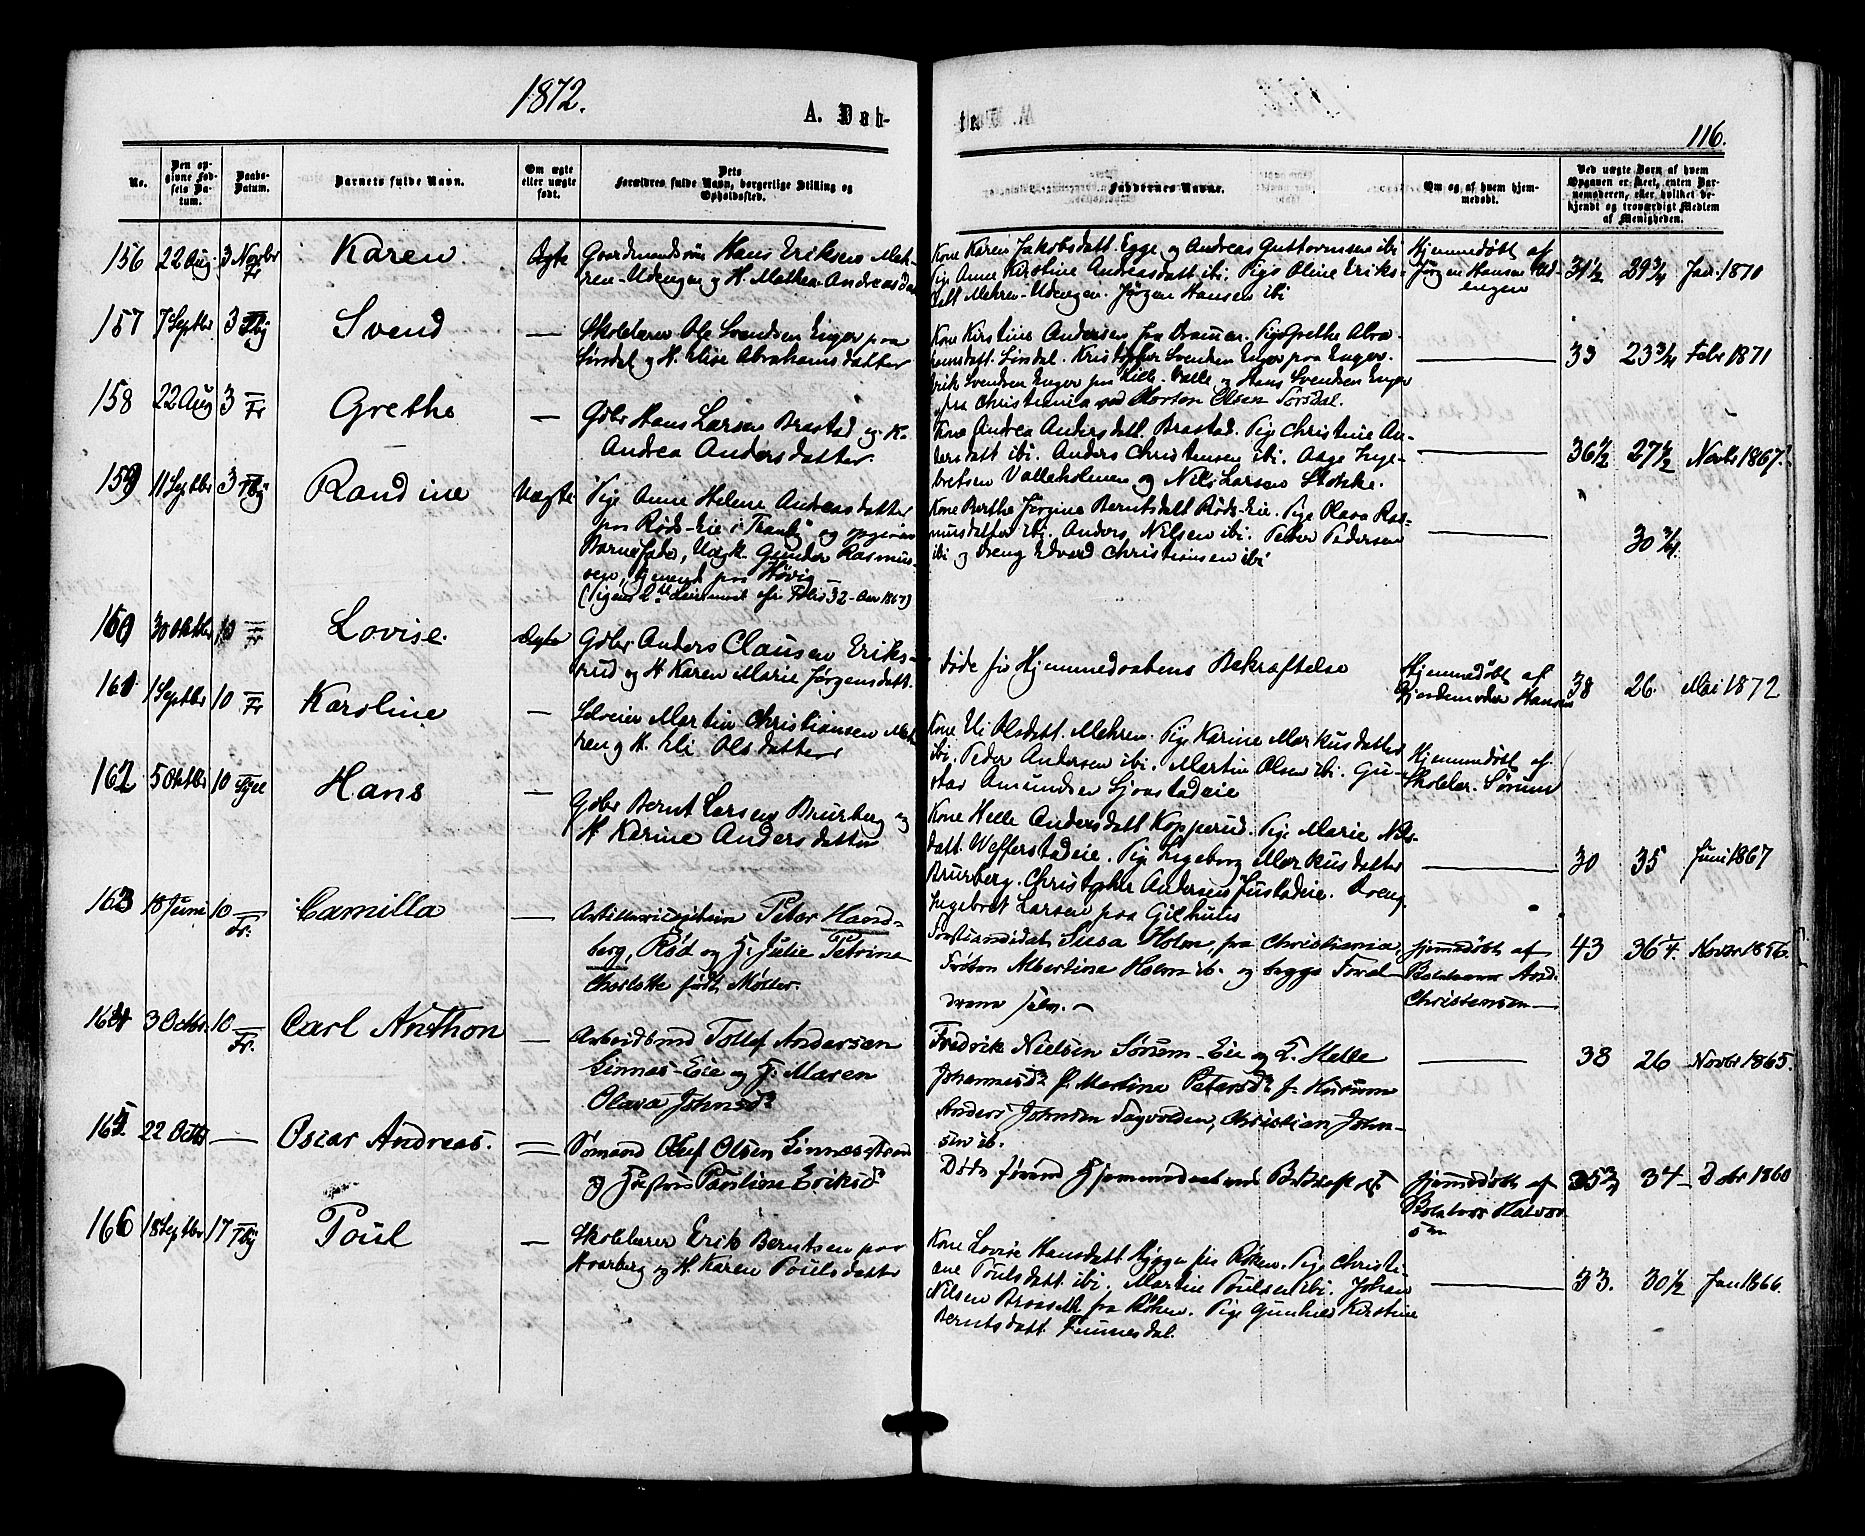 1872.
A. Døb-
te
116.
No.
Den op-
givne Fød-
sels Da-
tum.
Daabs-
Datum.
Barnets fulde Navn.
Om ægte
eller uægte
født.
Dets
Forældres fulde Navn, borgerlige Stilling og
Opholdssted.
Faddernes Navne.
Om og af hvem hjem-
medøbt.
Ved uægte Barn af hvem
Opgaven er skeet, enten Bar-
nemoderen, eller hvilket be-
kjendt og troværdigt Medlem
af Menigheden.
156 22 Aug 3 Novbr Fr Karen Ægte Gaardmandssøn Hans Eriksen Meh-
ren-Udengen og H. Mathea Andreasdat
Kone Karen Jakobsdatt. Egge og Andreas Guttormsen ibi
Pige Anne Kirstine Andreasdatt ibi. Pige Oline Eriks-
datt Mehren-Udengen. Jørgen Hansen ibi
Hjemmedøbt af
Jørgen Hansen Ud-
engen
31½ 29¾ Jan. 1870
157 7 Septbr 3 Tbg Svend — Skolelærer Ole Svendsen Enger paa
Linsdal og H. Elise Abrahamsdatter
Kone Kirstine Andersen fra Dramen. Pige Grethe Abra-
hamsdatt. Linsdal. Kristopher Svendsen Enger paa Enger.
Erik Svendsen Enger paa Hille-Valle og Hans Svendsen Enger
fra Christiania ved Morten Olsen Torsdal.
33 23¾ Febr 1871
158 22 Aug 3 Fr Grethe — Gdbr Hans Larsen Brastad og K.
Andrea Andersdatter.
Kone Andrea Andersdatt. Brastad. Pige Christine An-
dersdatt ibi. Anders Christensen ibi. Aage Inge-
bretsen Valleholmen og Nils Larsen Stokke.
36½ 27½ Novbr 1867.
159 11 Septbr 3 Tbg Randine Uægte Pige Anne Helene Andreasdatter
paa Røds-Eie i Tranby og opgiven
Barnefader, Ungk. Gunder Rasmus-
sen, tjenende paa Høvig
(Pigens 2det Leiermaal cfr Folio 32 - Aar 1867)
Kone Berthe Jørgine Berntsdatt Røds-Eie. Pige Olava Ras-
musdatter ibi. Anders Nilsen ibi. Peter Pedersen
ibi og Dreng Edvard Christiansen ibi
30¾.
160 30 Oktbr 10 Fr Lovise. Ægte Gdbr Anders Clausen Eriks-
rud og H. Karen Marie Jørgensdatt.
Døde før Hjemmedaabens Bekræftelse
Hjemmedøbt af
Gjordemoder Hansen
38 26. Mai 1872
161 1 Septbr 10 Fr Karoline — Selveier Martin Christiansen Meh-
ren og H. Eli Olsdatter
Kone Eli Olsdatt Mehren. Pige Karine Markusdatter
ibi. Peder Andersen ibi. Martin Olsen ibi. Gu-
stav Amundsen Sjaastadeie
Hjemmedøbt af
Skolelær. Sørum
162 5 Oktbr 10 Hans — Gdbr Bernt Larsen Brurberg og
H. Karine Andersdatter
Kone Helle Andersdatt Kopperud. Pige Marie Nils-
datt. Wefferstadeie. Pige Ingeborg Markusdatter
Brurberg. Christopher Andersen Justadeie. Dreng
Ingebret Larsen paa Gilhuus
30 35 Juni 1867
163 18 Juni 10 Fr. Camilla — Artillericapitain Peter Hand-
berg, Rød og H. Julie Petrine
Charlotte født Møller.
Forstkandidat Susa Holm fra Christiania,
Frøken Albertine Holm ib. og begge Foræl-
drene selv. —
hjemdøbt af
Skolelærer And.
Christensen —
43 36¼ Novbr 1856.
164 3 Octbr. 10 Fr. Carl Anthon — Arbeidsmd Tollef Andersen
Linnæs-Eie og H. Maren
Olava Johnsdr
Fredrik Nielsen Sørum-Eie og H. Helle
Johannesdr P. Martine Petersdr fr Husum
Anders Johnsen Tagvolden, Christian John-
sen ib.
38 26 Novbr 1865.
165. 22 Octbr — Oscar Andreas. = Sømand Oluf Olsen Linnæsstrand
og Hustru Pauline Eriksdr
Døde førend Hjemmedaabens Bekræftelse
hjemdøbt af
Skolelærer Halvor-
sen
25¾ 34 — Dcbr 1860
166 18 Septbr 17 Tbg Poul — Skolelærer Erik Berntsen paa
Hvarberg og H. Karen Poulsdatter
Kone Lovise Hansdatt Hygge fra Røken. Pige Christi-
ane Poulsdatt ibi. Martin Poulsen ibi. Johan
Nilsen Braasett fra Røken. Pige Gunhild Kirstine
Berntsdatt Finnesdal.
33. 30½ Jan 1866.